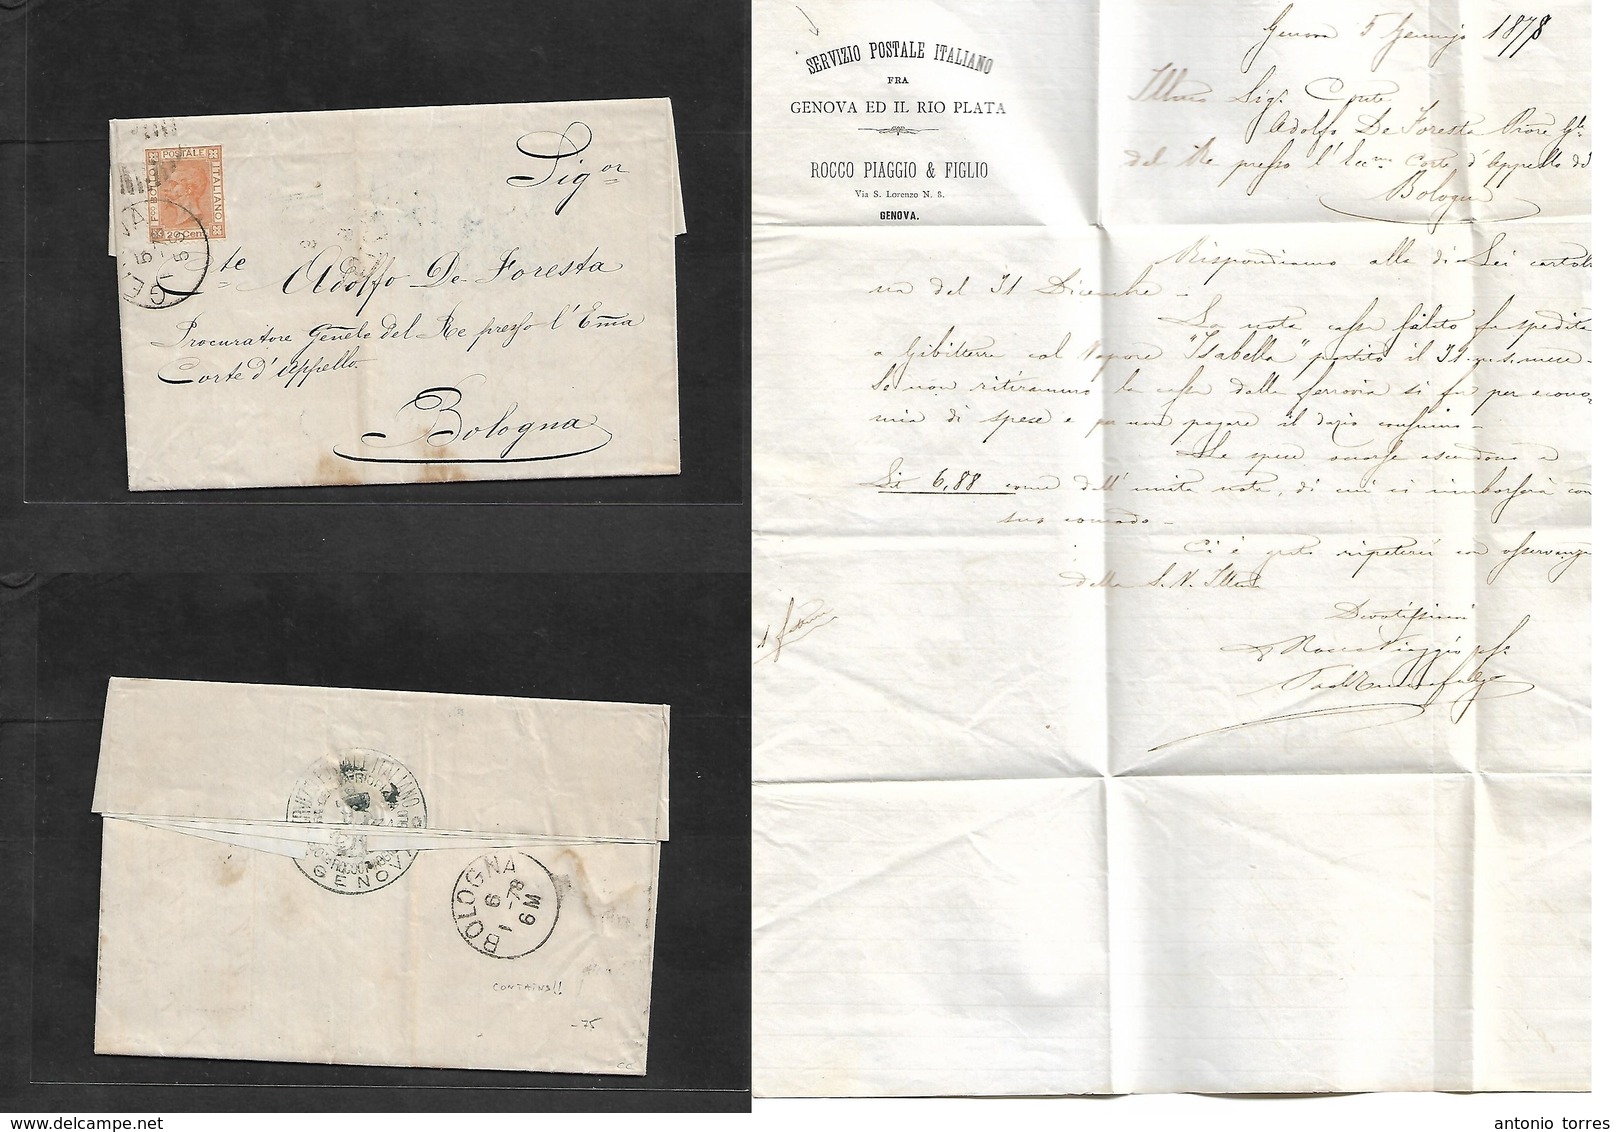 POSTALE
ITALIANO
Fco BOLLO
20 Cent
GE VA
5
Sigor
Cte Adolfo De Foresta
Procuratore Genele del Re presso l'Ema
Corte d'Appello.
Bologna
GENOVA
BOLOGNA
6
1 -78
6M
CONTAINS!!
-75
CC
SERVIZIO POSTALE ITALIANO
FRA
GENOVA ED IL RIO PLATA
ROCCO PIAGGIO & FIGLIO
Via S. Lorenzo N. 8.
GENOVA.
Genova 5 Gennajo 1878
Illmo Sigr Conte
Adolfo De Foresta
del Re presso l'Ecma Corte d'Appello di
Bologna
Rispondiamo alla di Lei cartoli
na del 31 Dicembre -
La nota cassa fu spedita
a Gibilterra col Vapore "Isabella" partito il 31
Se non ritirammo la cassa dalla ferrovia si fu per econo
mia di spese e per non pagare il dazio consumo -
Le spese ascendono a
6,88 come dall'unita nota, di cui ci rimborserà con
suo comodo -
Ci è grato ripeterci con osservanza
della S. V. Illma
Devotissimi
Rocco Piaggio
antonio torres